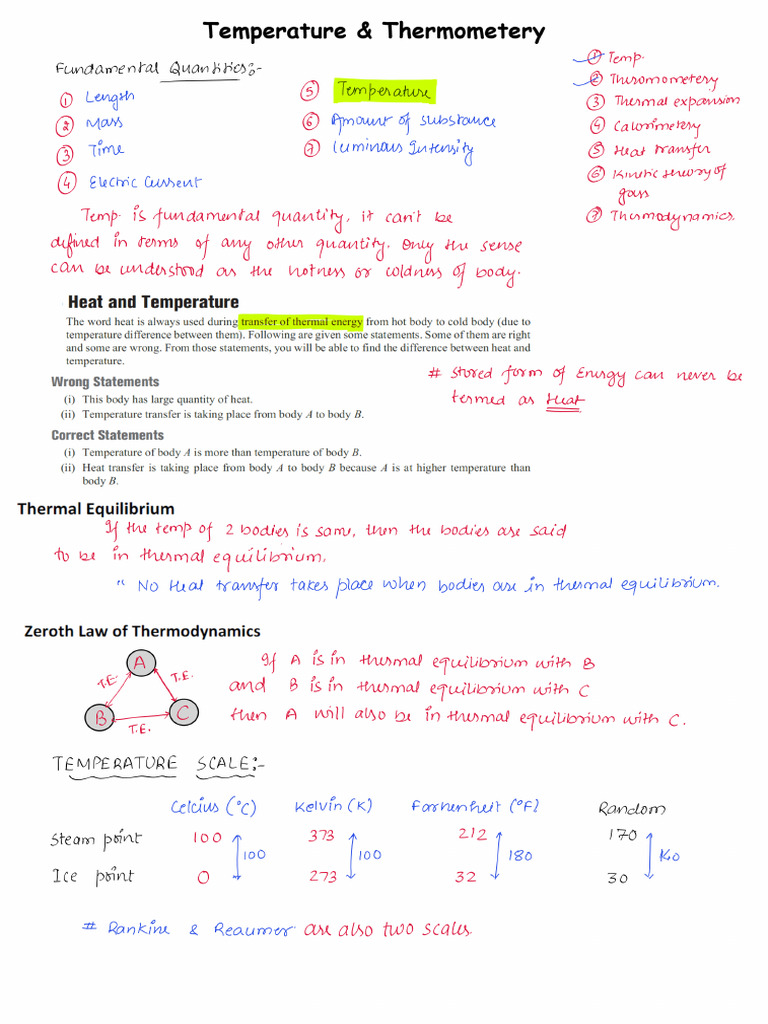 Temperature & Thermometery
Fundamental Quantities:-
① Length
② Mass
③ Time
④ Electric Current
⑤ Temperature
⑥ Amount of substance
⑦ Luminous Intensity
① Temp.
② Thermometery
③ Thermal expansion
④ Calorimetery
⑤ Heat transfer
⑥ Kinetic theory of
gases
⑦ Thermodynamics.
Temp. is fundamental quantity, it can't be
defined in terms of any other quantity. Only the sense
can be understood as the hotness or coldness of body.
Heat and Temperature
The word heat is always used during transfer of thermal energy from hot body to cold body (due to
temperature difference between them). Following are given some statements. Some of them are right
and some are wrong. From those statements, you will be able to find the difference between heat and
temperature.
# Stored form of Energy can never be
termed as Heat
Wrong Statements
(i) This body has large quantity of heat.
(ii) Temperature transfer is taking place from body A to body B.
Correct Statements
(i) Temperature of body A is more than temperature of body B.
(ii) Heat transfer is taking place from body A to body B because A is at higher temperature than
body B.
Thermal Equilibrium
If the temp of 2 bodies is same, then the bodies are said
to be in thermal equilibrium.
" No Heat transfer takes place when bodies are in thermal equilibrium.
Zeroth Law of Thermodynamics
A
T.E. T.E.
B C
T.E.
If A is in thermal equilibrium with B
and B is in thermal equilibrium with C
then A will also be in thermal equilibrium with C.
TEMPERATURE SCALE:-
Celcius (°C) Kelvin (K) Farhenheit (°F) Random
Steam point 100 373 212 170
100 100 180 140
Ice point 0 273 32 30
# Rankine & Reaumer are also two scales.